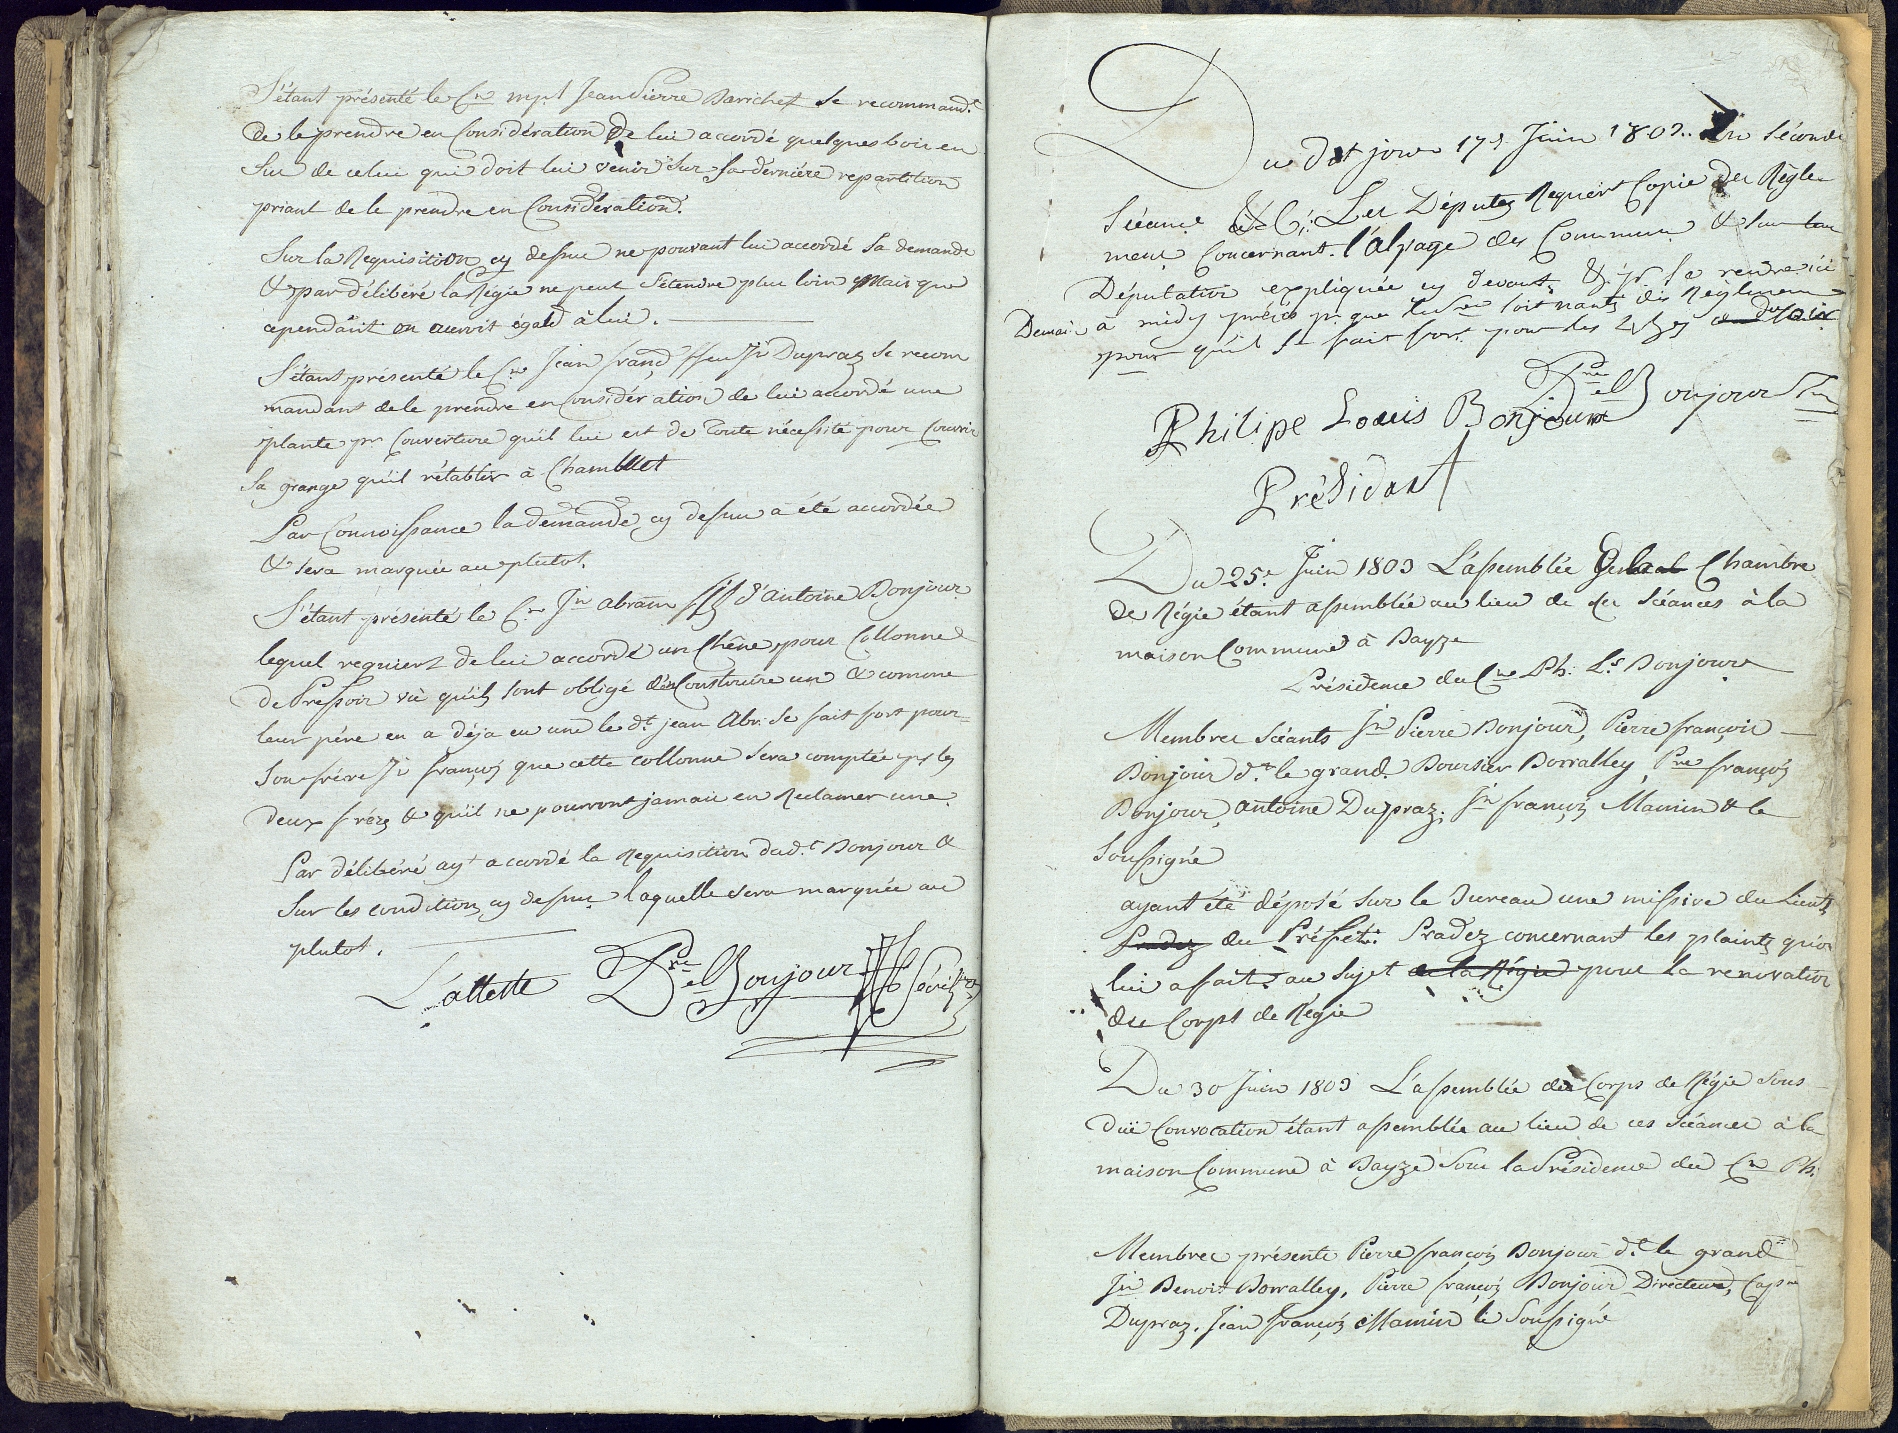 S'étant présenté le Cn mpl Jean Pierre Barichet se recommandt
de le prendre en Considération De lui accordé quelques bois en
Sus de celui qui doit lui venir sur sa dernière repartition
priant de le prendre en Considération.
Sur la Requisition cy dessus ne pouvant lui accordé sa demande
& par délibéré la Régie ne peut s'étendre plus loin mais que
cependant on auroit égard à lui.
S'étant présenté le Cn Jean franç ffeu Jn Dupraz se recom
mandant de le prendre en Considération de lui accordé une
plante pr Couverture qu'il lui est de toute nécessité pour Couvrir
Sa grange qu'il rétablir à Chamblet
Par Connoissance la demande cy dessus a été accordée
& sera marquée au plutot.
S'étant présenté le Cn Jn abram ffs d'antoine Bonjour
lequel requiert de lui accordé un Chêne pour Collonne
de Pressoir vû qu'ils sont obligé de Construire un & comme
leur père en a déja eu une le dt jean Abr. se fait fort pour
Son frère Jn françs que cette collonne sera comptée pr les
deux frères & qu'il ne pourront jamais en Reclamer une.
Par délibéré ayt accordé la Requisition dudt Bonjour &
Sur les condition cy dessus laquelle sera marquée au
plutot.
L'atteste Pre Bonjour Sécrétre
Du dt jour 17e Juin 1803. En Séconde
Séance &C: Les Députés Requiert Copie des Régle
ment Concernant l'alpage des Commune & sur leur
Députation expliquée cy devant, & pr se rendre ici
Demain à midy précis pr que le Sre soit nantis dis Réglement
pour qu'il se fait fort pour les
Pre Bonjour Sre
Philipe Louis Bonjour
Présidant
Du 25e Juin 1803 L'assemblée Chambre
de Régie étant assemblée au lieu de ses Séances à la
maison Commune à Bayze
Présidence du Cne Ph: Ls Bonjour
Membres Séants Jn Pierre Bonjour, Pierre françois
Bonjour dt le grand Boursier Borralley, Pre françs
Bonjour, antoine Dupraz, Jn françs Mamin & le
Soussigné
ayant été déposé sur le Bureau une missive du Lieuts
Pradez du Préfet: Pradez concernant les plaints qu'on
lui a fait au sujet de la Régie pour la renovation
du Corps de Régie
Du 30 Juin 1803 L'assemblée du Corps de Régie Sous
Duë Convocation étant assemblée au lieu de ces Séances à la
maison Commune à Bayze Sous la Présidence du Cn Ph:
Membres présents Pierre françois Bonjour dt le grand
Jn Benoit Borralley, Pierre françs Bonjour Directeur, Capne
Dupraz, Jean françs Mamin le Soussigné